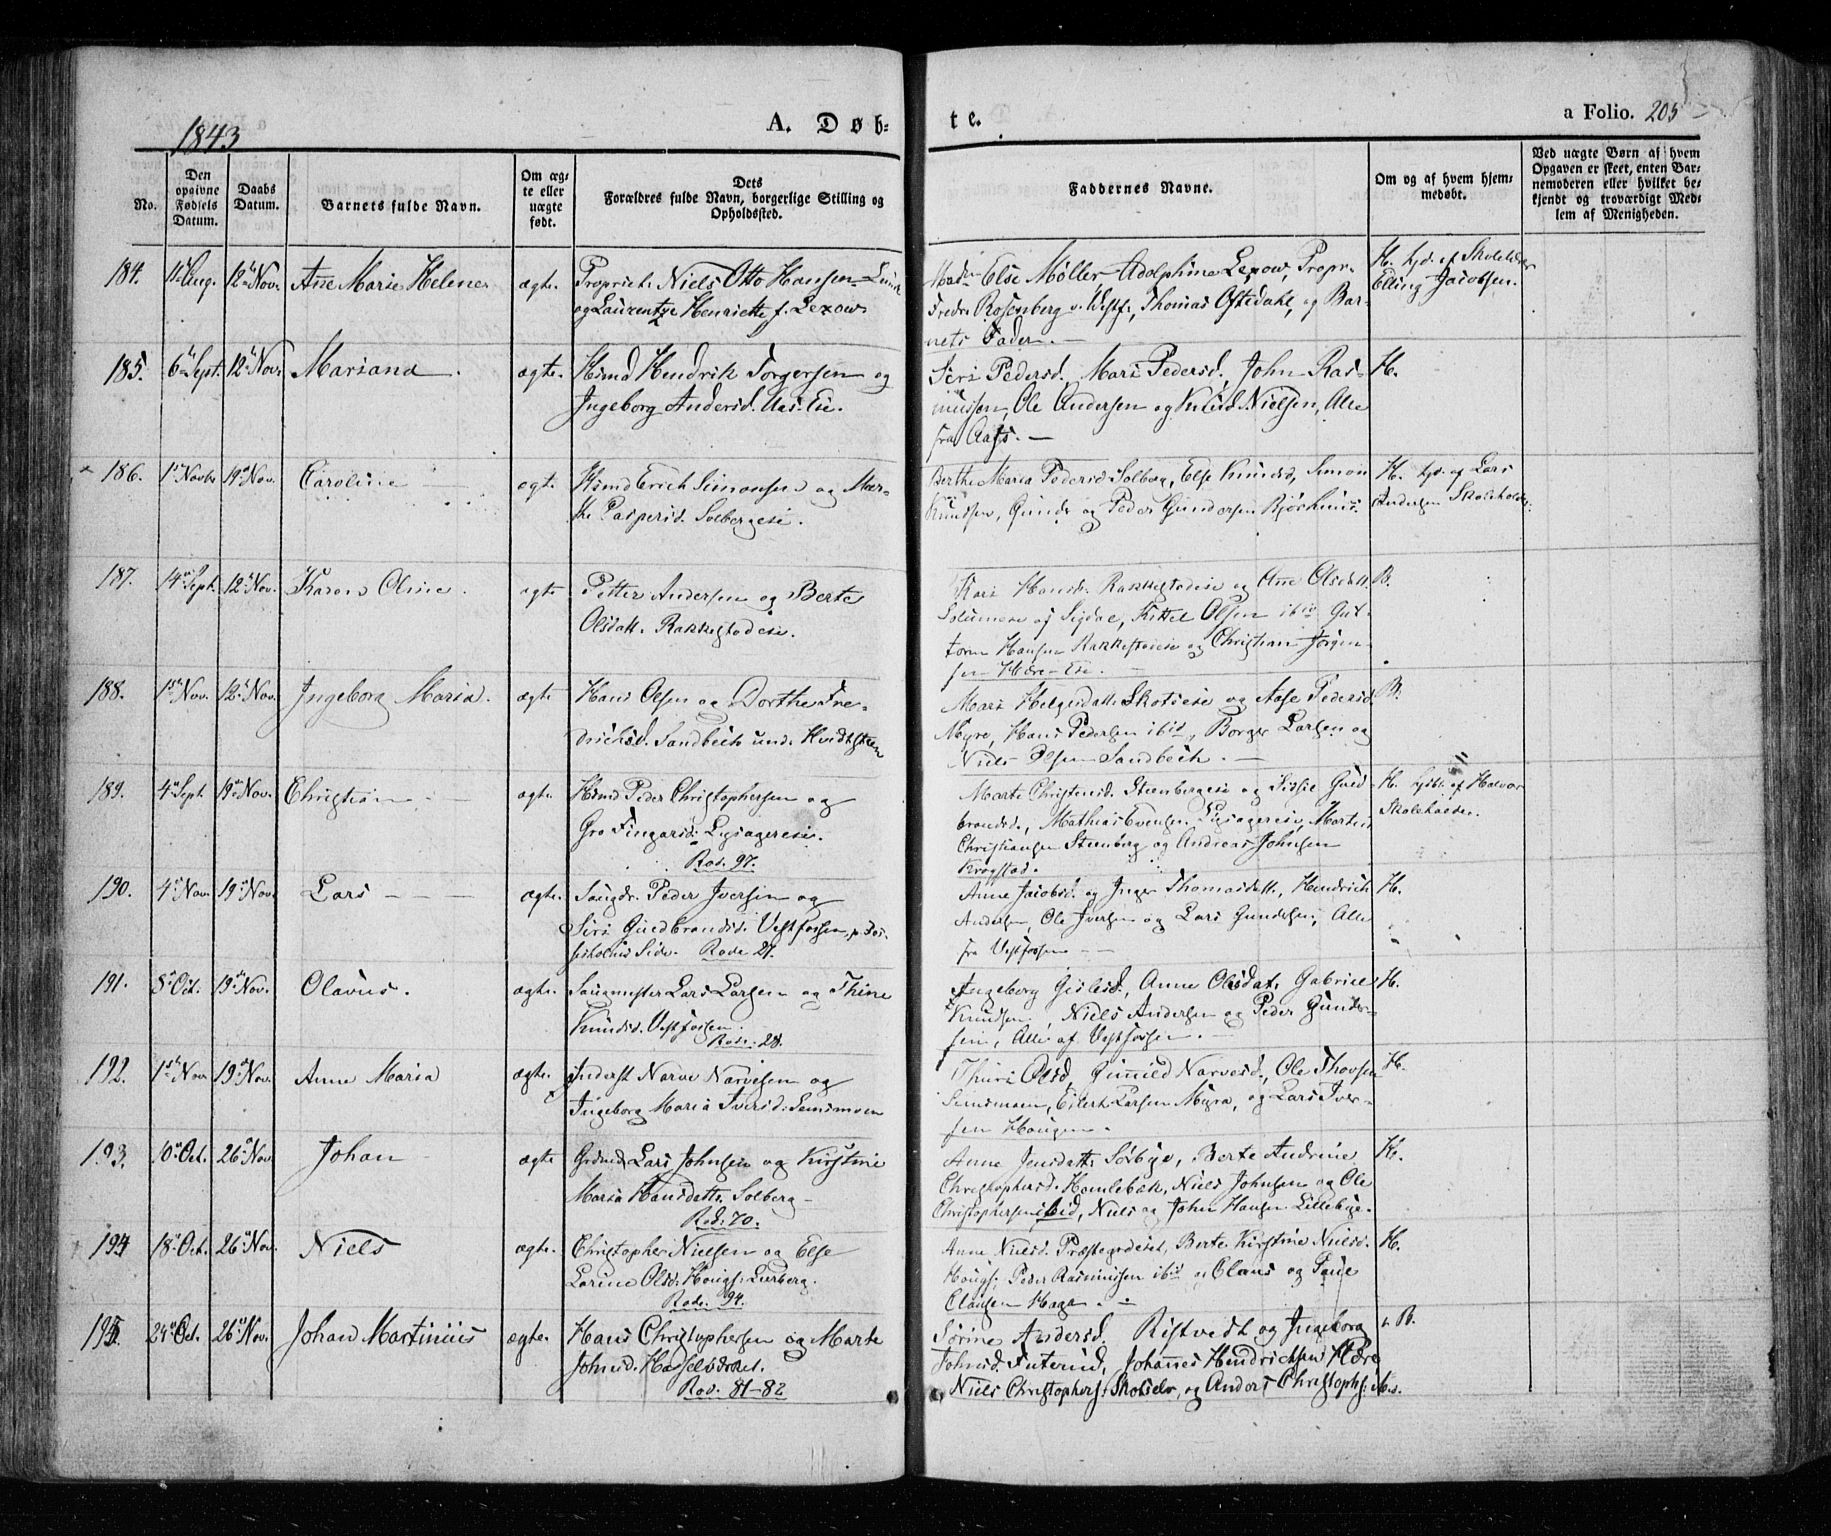 1843
A. Døb-
te.
a Folio. 205
No.
Den opgivne Fødsels Datum.
Daabs Datum.
Barnets fulde Navn.
Om ægte eller uægte født.
Dets
Forældres fulde Navn, borgerlige Stilling og Opholdssted.
Faddernes Navne.
Om og af hvem hjemmedøbt.
Ved uægte Børn af hvem Opgaven er skeet, enten Barnemoderen eller hvilket bekjendt og troværdigt Medlem af Menigheden.
184. 11 Aug. 12 Nov. Ane Marie Helene ægte. Propriet. Niels Otto Hansen
og Laurentze Henriette f. Lexow
Else Møller, Adolphine Lexow, Propr.
Fredr. Rosenberg v. Vestf., Thomas Ofstedahl, og Bar-
nets Fader. —
H. af Skoleh.
Elling Jacobsen.
185. 6 Sept. 12 Nov. Mariana ægte. Hsmd Hendrik Torgersen og
Ingeborg Andersd. Aas Eie.
Siri Pedersd, Mari Pedersd, John Ras-
mussen, Ole Andersen og Knud Nielsen, Alle
fra Aas. —
H.
186. 1 Novbr 19 Nov. Caroline ægte. Hsmd Erich Simonsen og Mar-
the Caspersd. Solbergeie.
Berthe Maria Pedersd Solberg, Else Knudsd, Simon
Knudsen, Gunder og Peder Gundersen
H. af Lars
Andersen Skoleholder.
187. 14 Sept. 12 Nov. Karen Oline. ægte Petter Andersen og Berte
Olsdatt. Rakkestadeie.
Kari Hansd. Rakkestadeie og Ane Olsdatt.
af Sigdal, Kittel Olsen ibid Gut-
torm Hansen Rakkestadeie og Christian Jørgen-
sen Høre-Eie. —
B.
188. 1 Nov. 12 Nov. Ingeborg Maria. ægte Hans Olsen og Dorthe Fre-
drichsd. Sandbech und. Hvidtsteen
Mari Helgesdatt. Skotseie og Aase Pedersd.
Myre, Hans Pedersen ibid, Borger Larsen og
Niels Olsen Sandbech. —
B.
189. 4 Sept. 19 Nov. Christian — ægte. Hsmd Peder Christophersen og
Gro Fingarsd. Lysagereie.
Rod. 97.
Marte Christensd. Steenbergeie og Sissie Gud-
brandsd., Mathias Evensen Lysagereie, Morten
Christiansen Steenberg og Andreas Johnsen
Krogstad.
H. af Halvor
Skoleholder.
190. 4 Nov. 19 Nov. Lars — — — ægte. Saugdr. Peder Iversen og
Siri Gudbrandsd. Vestfossen,
Side. Rode 27.
Anne Jacobsd. og Inger Thomasdatt., Hendrich
Andersen, Ole Iversen og Lars Gundersen, Alle
fra Vestfossen — —
H.
191. 8 Oct. 19 Nov. Olavus. ægte. Saugmester Lars Larsen og Thine
Knudsd. Vestfossen.
Rode. 28.
Ingeborg Gislesd, Anne Olsdat, Gabriel
Knudsen, Niels Andersen og Peder Gunder-
sen, Alle af Vestfossen.
H.
192. 1 Nov 19 Nov. Anne Maria ægte. Inderst Narve Narvesen og
Ingeborg Maria Iversd. Semsmoen
Thuri Olsd, Gunild Narvesd., Ole Thovsen
Semsmoen, Eilert Larsen Myra, og Lars Iver-
sen Haugen.
H.
193. 10 Oct. 26 Nov Johan ægte Grdmd Lars Johnsen og Kirstine
Maria Hansdatt. Solberg —
Rod. 70.
Anne Jensdatt. Sørbye, Berte Andrine
Christophersd. Hamlebak, Niels Johnsen og Ole
Christophersen ibid, Niels og John Hansen Lillebye.
H.
194 18 Oct. 26 Nov. Niels ægte. Christopher Nielsen og Else
Larine Olsd. Hougs. Lierberg.
Rode. 94.
Anne Nielsd. Præstegrdeiet, Berte Kirstine Nielsd.
Hougs. Peder Rasmussen ibid og Claus og Paul
Clausen Haga. —
H.
195. 24 Oct. 26 Nov. Johan Martinius ægte. Hans Christophersen og Marte
Johnsd. Hasselvdrket.
Rod. 81-82
Sørine Andersd. Ristvedt og Ingeborg
Johnsd. Futerud, Johannes Hendrichsen Høre
Niels Christophers. Skotselv, og Anders Christophs.
B.